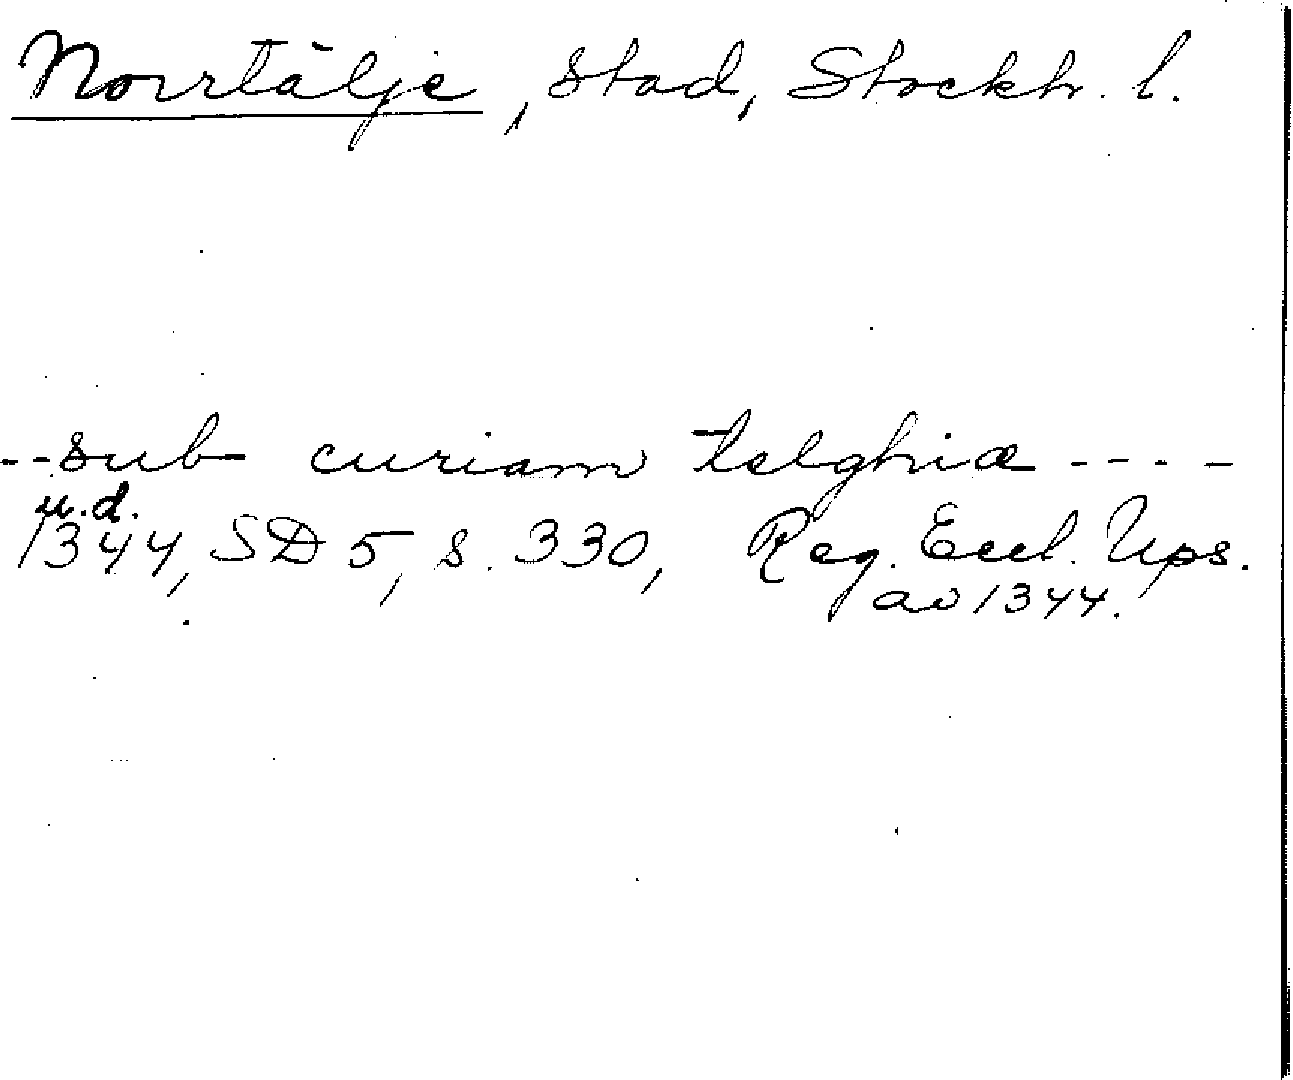 Norrtälje, stad, Stockh. l.
--sub curiam telghiæ ----
u.d.
1344, SD 5, s. 330, Reg. Eccl. Ups.
av 1344.